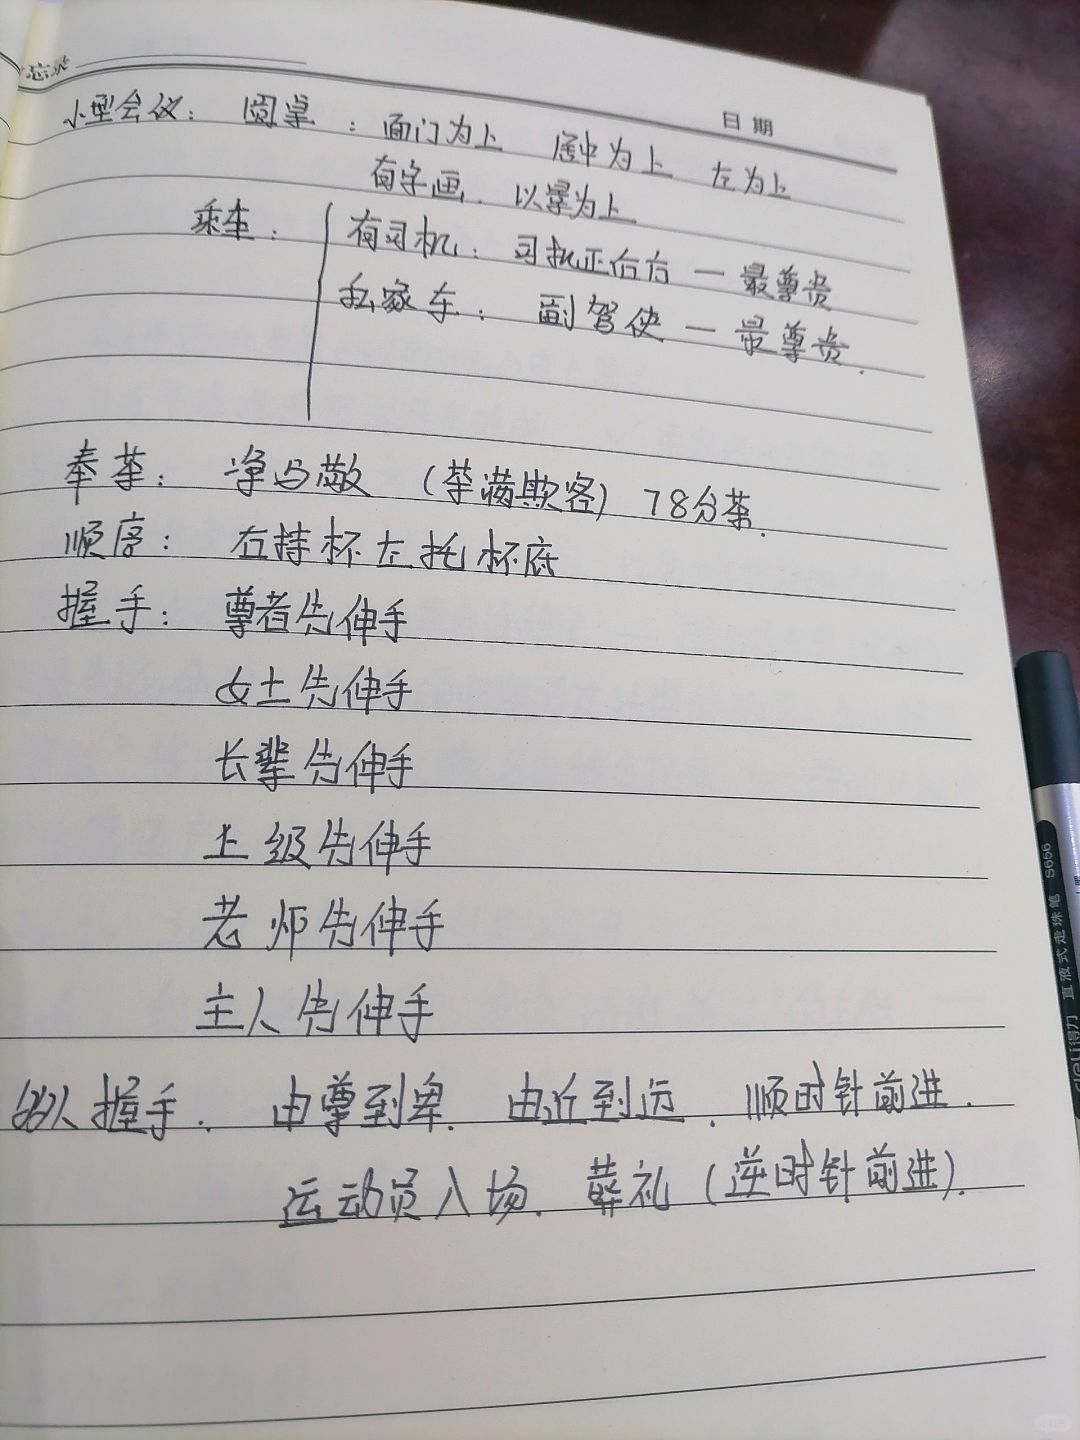 忘录
日期
小型会议： 圆桌 ：面门为上 居中为上 左为上
有字画. 以景为上
乘车： 有司机：司机正后方 — 最尊贵
私家车：副驾使 — 最尊贵.
奉茶： 净与敬 （茶满欺客） 78分茶.
顺序： 右持杯左托杯底
握手： 尊者先伸手
女士先伸手
长辈先伸手
上级先伸手
老师先伸手
主人先伸手
多人握手. 由尊到卑. 由近到远. 顺时针前进.
运动员入场. 葬礼（逆时针前进）.
得力 直液式走珠笔 S656